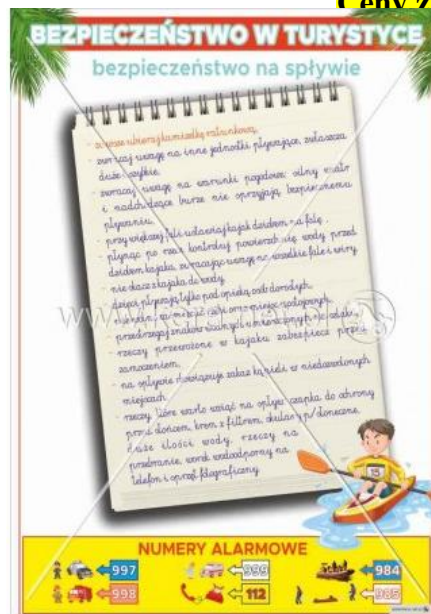 Ceny z
BEZPIECZEŃSTWO W TURYSTYCE
bezpieczeństwo na spływie
- zawsze ubieraj kamizelkę ratunkową,
- zwracaj uwagę na inne jednostki pływające, zwłaszcza
duże i szybkie.
- zwracaj uwagę na warunki pogodowe: silny wiatr
i nadchodzące burze nie sprzyjają bezpiecznemu
pływaniu.
- przy większej fali ustawiaj kajak dziobem na falę.
- płynąc po rzece kontroluj powierzchnię wody przed
dziobem kajaka, zwracając uwagę na wszelkie fale i wiry.
- nie skacz z kajaka do wody.
- dzieci pływają tylko pod opieką osób dorosłych.
- nie
- przestrzegaj znaków
- rzeczy przewożone w kajaku zabezpiecz przed
zamoczeniem.
- na spływie obowiązuje zakaz kąpieli w niedozwolonych
miejscach.
- rzeczy, które warto wziąć na spływ: czapka do ochrony
przed słońcem, krem z filtrem, okulary p/słoneczne,
duże ilości wody, rzeczy na
przebranie, worek wodoodporny na
telefon i sprzęt fotograficzny.
15
NUMERY ALARMOWE
997 999 984
998 112 985